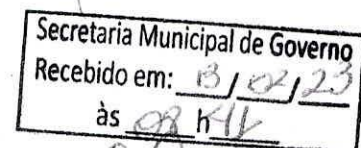 Secretaria Municipal de Governo
Recebido em: 13/02/23
às 08 h